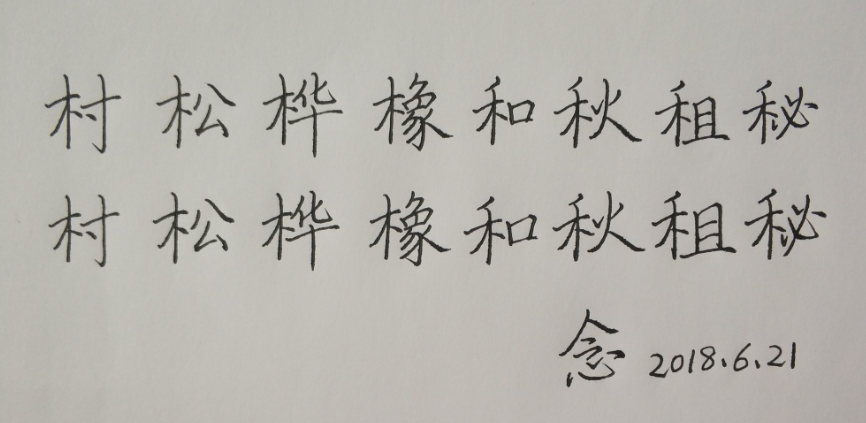 村松桦橡和秋租秘
村松桦橡和秋租秘
念 2018.6.21